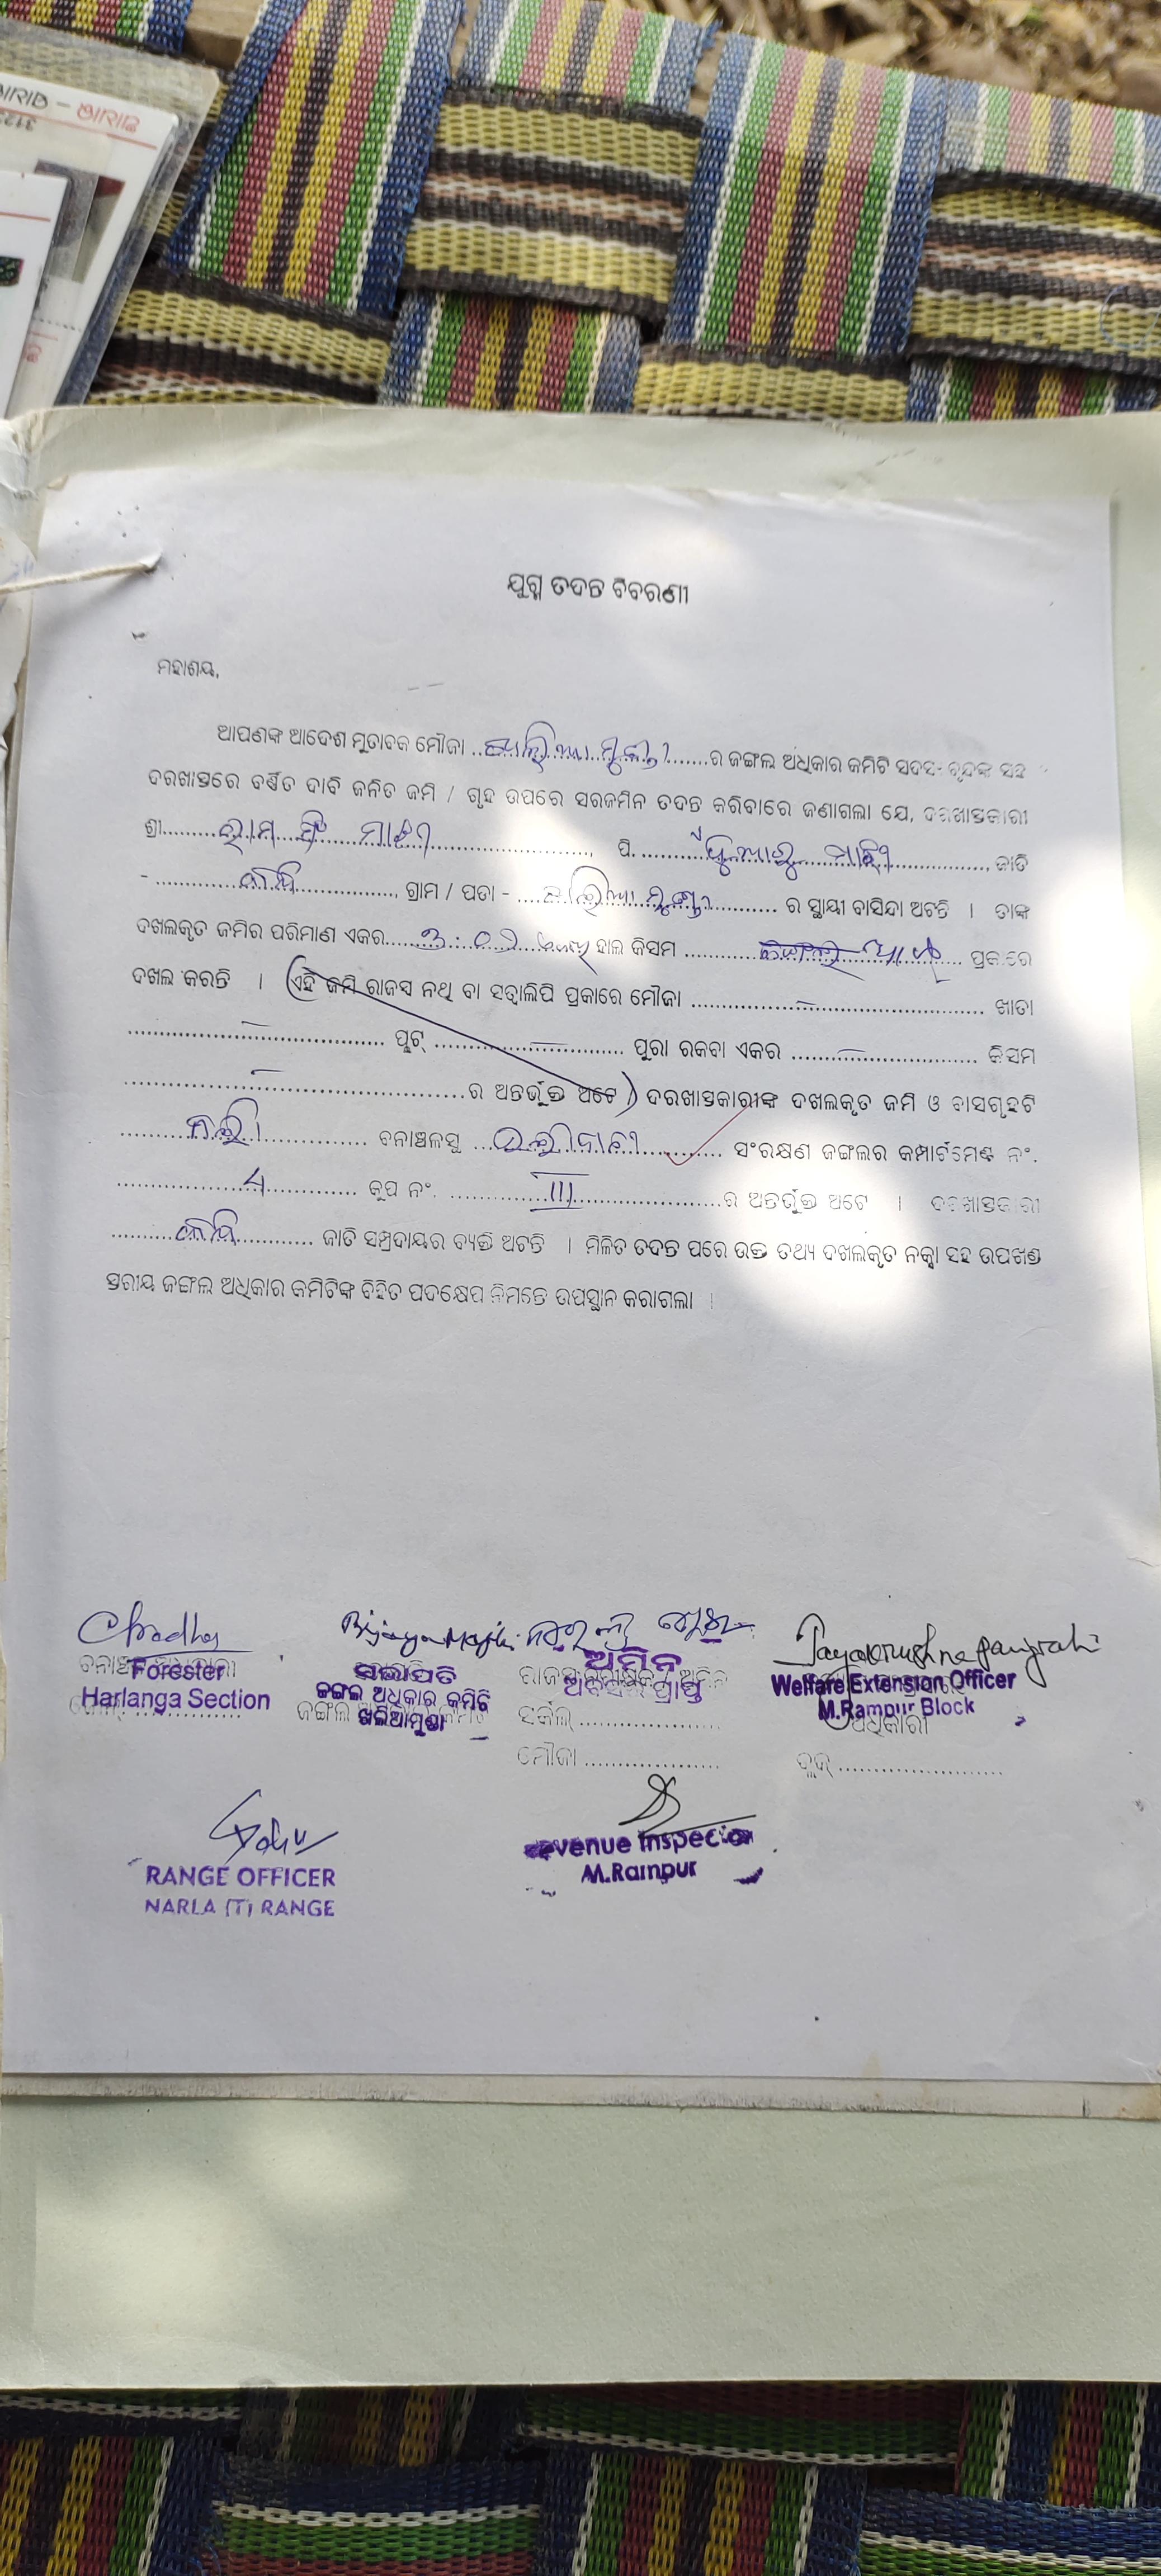 ଯୁଗ୍ମ ତଦନ୍ତ ବିବରଣୀ
ମହାଶୟ,
ଆପଣଙ୍କ ଆଦେଶ ମୁତାବକ ମୌଜା ..ଖାଲିଆମୁଣ୍ଡା.......ର ଜଙ୍ଗଲ ଅଧିକାର କମିଟି ସଦସ୍ୟ ବୃନ୍ଦଙ୍କ ସହ
ଦରଖାସ୍ତରେ ବର୍ଣ୍ଣିତ ଦାବି ଜନିତ ଜମି / ଗୃହ ଉପରେ ସରଜମିନ ତଦନ୍ତ କରିବାରେ ଜଣାଗଲା ଯେ, ଦରଖାସ୍ତକାରୀ
ଶ୍ରୀ.......... ମାଝୀ ......................, ପି. .......... ମାଝୀ ..............., ଜାତି
- ............ କନ୍ଧ ..............., ଗ୍ରାମ / ପଡା - .... ଖାଲିଆମୁଣ୍ଡା .......... ର ସ୍ଥାୟୀ ବାସିନ୍ଦା ଅଟନ୍ତି । ତାଙ୍କ
ଦଖଲକୃତ ଜମିର ପରିମାଣ ଏକର..... ୩.୦୨ ..... ହାଲ କିସମ .......... ପ୍ରକାରେ
ଦଖଲ କରନ୍ତି । (ଏହି ଜମି ରାଜସ୍ୱ ନଥି ବା ସତ୍ୱାଲିପି ପ୍ରକାରେ ମୌଜା ..........–.......... ଖାତା
..........–.......... ପ୍ଲଟ୍ ..........–.......... ପୁରା ରକବା ଏକର ........–........ କିସମ
..........–.......... ର ଅନ୍ତର୍ଭୁକ୍ତ ଅଟେ) ଦରଖାସ୍ତକାରୀଙ୍କ ଦଖଲକୃତ ଜମି ଓ ବାସଗୃହଟି
.................... ବନାଞ୍ଚଳସ୍ଥ .................... ସଂରକ୍ଷଣ ଜଙ୍ଗଲର କମ୍ପାର୍ଟମେଣ୍ଟ ନଂ.
............ 4 ............ କୁପ ନଂ. ............ III ............ର ଅନ୍ତର୍ଭୁକ୍ତ ଅଟେ । ଦରଖାସ୍ତକାରୀ
.......... କନ୍ଧ .......... ଜାତି ସମ୍ପ୍ରଦାୟର ବ୍ୟକ୍ତି ଅଟନ୍ତି । ମିଳିତ ତଦନ୍ତ ପରେ ଉକ୍ତ ତଥ୍ୟ ଦଖଲକୃତ ନକ୍ସା ସହ ଉପଖଣ୍ଡ
ସ୍ତରୀୟ ଜଙ୍ଗଲ ଅଧିକାର କମିଟିଙ୍କ ବିହିତ ପଦକ୍ଷେପ ନିମନ୍ତେ ଉପସ୍ଥାନ କରାଗଲା ।
Bijaya Majhi Jayakrushna Panigrahi
Forester
Harlanga Section
ସଭାପତି
ଜଙ୍ଗଲ ଅଧିକାର କମିଟି
ଖଲିଆମୁଣ୍ଡା
ଅମିନ
ଅବସର ପ୍ରାପ୍ତ
ସର୍କଲ ....................
ମୌଜା ....................
Welfare Extension Officer
M.Rampur Block
ଅଧିକାରୀ
ବ୍ଲକ୍ ........................
RANGE OFFICER
NARLA (T) RANGE
Revenue Inspector
M.Rampur